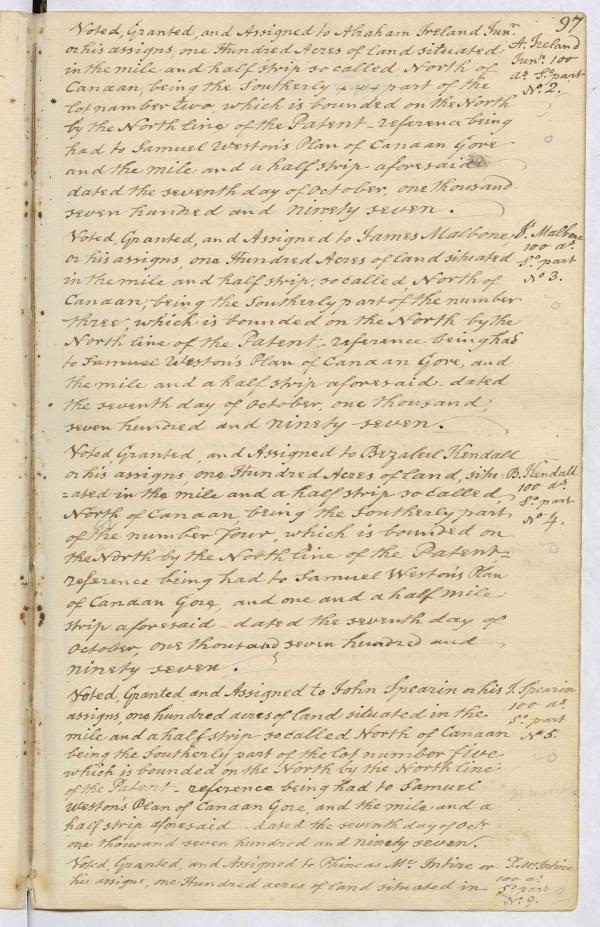 97
Voted, Granted, and Assigned to Abraham Ireland Junr.
or his assigns, one Hundred Acres of land situated
in the mile and half strip so called, North of
Canaan, being the Southerly part of the
lot number two, which is bounded on the North
by the North line of the Patent - reference being
had to Samuel Weston's Plan of Canaan Gore
and the mile and a half strip aforesaid
dated the seventh day of October, one thousand
seven hundred and ninety seven.
A. Ireland
Junr. 100
as. So. part
No. 2.
Voted, Granted, and Assigned to James Malbone,
or his assigns, one Hundred Acres of Land situated
in the mile and half strip, so called, North of
Canaan, being the Southerly part of the number
three, which is bounded on the North by the
North line of the Patent - reference being had
to Samuel Weston's Plan of Canaan Gore, and
the mile and a half strip aforesaid - dated
the seventh day of October, one thousand,
seven hundred and ninety seven.
Js. Malbone
100 as.
So. part
No 3.
Voted Granted, and Assigned to Bezaleel Kendall
or his assigns, one Hundred Acres of Land, situ-
=ated in the mile and a half strip so called,
North of Canaan, being the Southerly part
of the number four, which is bounded on
the North by the North line of the Patent=
reference being had to Samuel Weston's Plan
of Canaan Gore, and one and a half mile
strip aforesaid - dated the seventh day of
October, one thousand, seven hundred and
ninety seven.
B. Kendall
100 as.
So. part
No 4.
Voted, Granted, and Assigned to John Spearin or his
assigns, one hundred acres of land situated in the
mile and a half strip so called North of Canaan
being the Southerly part of the lot number five
which is bounded on the North by the North line
of the Patent - reference being had to Samuel
Weston's Plan of Canaan Gore, and the mile and a
half strip aforesaid - dated the seventh day of Octr
one thousand seven hundred and ninety seven.
J. Spearin
100 as.
So. part
No 5.
Voted, Granted, and Assigned to Phineas Mc. Intire or
his assigns, one Hundred acres of land situated in
P. Mc Intire
100 as.
So. part
No. 9.